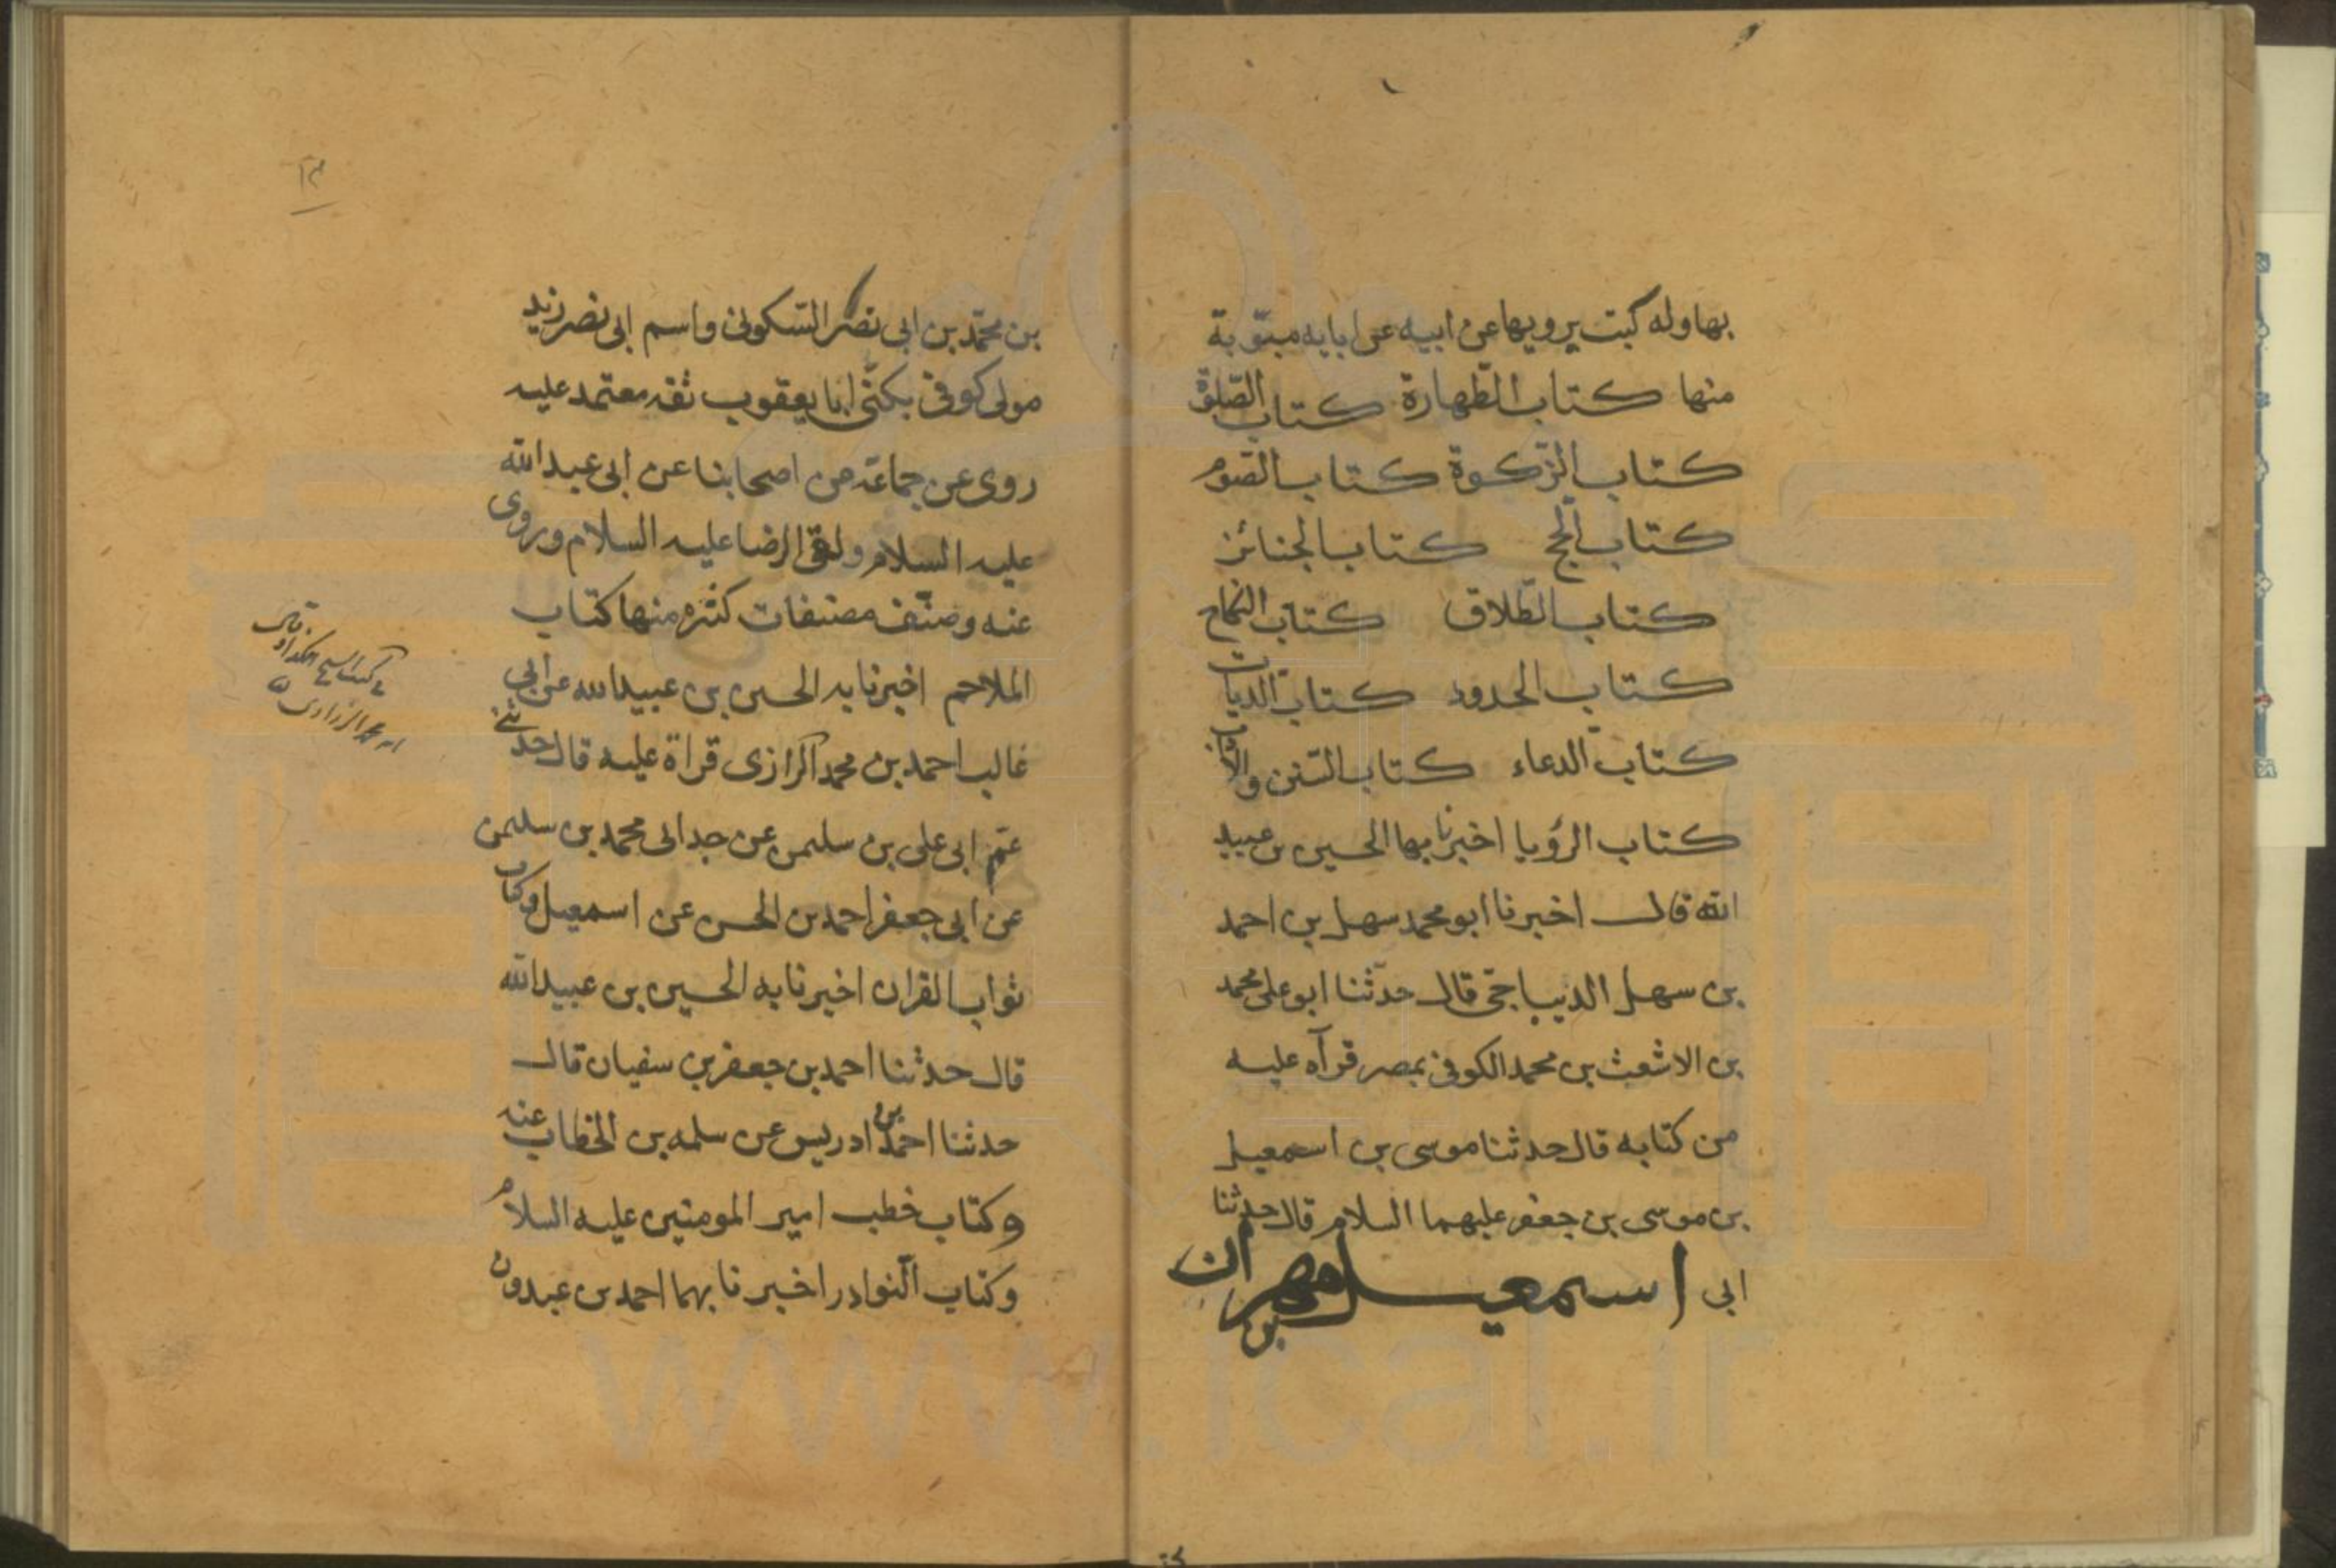 بها وله كتب يرويها عن ابيه عن ابايه مبوّبة
منها كتاب الطّهارة كتاب الصّلوة
كتاب الزّكوة كتاب الصّوم
كتاب الحج كتاب الجنائز
كتاب الطّلاق كتاب النكاح
كتاب الحدود كتاب الديات
كتاب الدعاء كتاب السّنن والآداب
كتاب الرؤيا اخبرنا بها الحسين بن عبيد
الله قال اخبرنا ابو محمد سهل بن احمد
بن سهل الديباجى قال حدّثنا ابو على محمد
بن الاشعث بن محمد الكوفى بمصر قرآه عليه
من كتابه قال حدثنا موسى بن اسمعيل
بن موسى بن جعفر عليهما السلام قال حدثنا
ابى اسمعيل بن مهران
١٣
بن محمّد بن ابى نصر السّكونى واسم ابى نصر زيد
مولى كوفى يكنّى ابا يعقوب ثقه معتمد عليه
روى عن جماعة من اصحابنا عن ابى عبد الله
عليه السلام ولقى الرضا عليه السلام وروى
عنه وصنّف مصنفات كثره منها كتاب
الملاحم اخبرنا به الحسين بن عبيد الله عن ابى
غالب احمد بن محمد الرازى قراة عليه قال حدثنى
عم ابى على بن سليمن عن جد ابى محمد بن سليمن
عن ابى جعفر احمد بن الحسن عن اسمعيل وكتاب
ثواب القران اخبرنا به الحسين بن عبيد الله
قال حدثنا احمد بن جعفر بن سفيان قال
حدثنا احمد بن ادريس عن سلمه بن الخطاب عنه
وكتاب خطب امير المومنين عليه السلام
وكتاب النّوادر اخبرنا بهما احمد بن عبدون
www.ical.ir